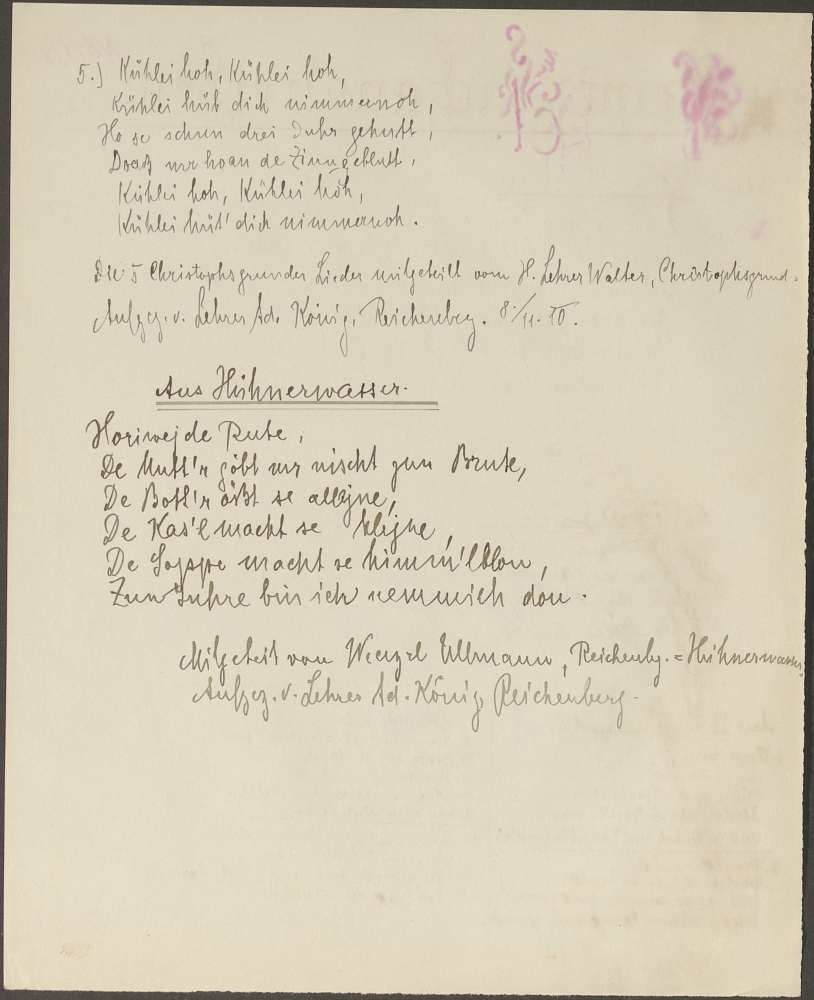 5.) Kühlei hoh, Kühlei hoh,
Kühlei hüt dich nimmernoh,
Ho se schun drei Juhr gehutt,
Doaß mr hoan de Zinngeblutt,
Kühlei hoh, Kühlei hoh,
Kühlei hüt' dich nimmernoh.
Die 5 Christophsgrunder Lieder mitgeteilt vom H. Lehrer Walter, Christophsgrund.
Aufgez. v. Lehrer Ad. König, Reichenberg. 8./11. 10.
Aus Hühnerwasser.
Horiwejde Rute,
De Mutt'r göbt mr nischt zun Brute,
De Bott'r ößt se allejne,
De Kas'l macht se klejne,
De Soppe macht se himm'lblou,
Zun Juhre bin ich nemmieh dou.
Mitgeteilt von Wenzel Ullmann, Reichenbg. = Hühnerwasser.
Aufgez. v. Lehrer Ad. König, Reichenberg.